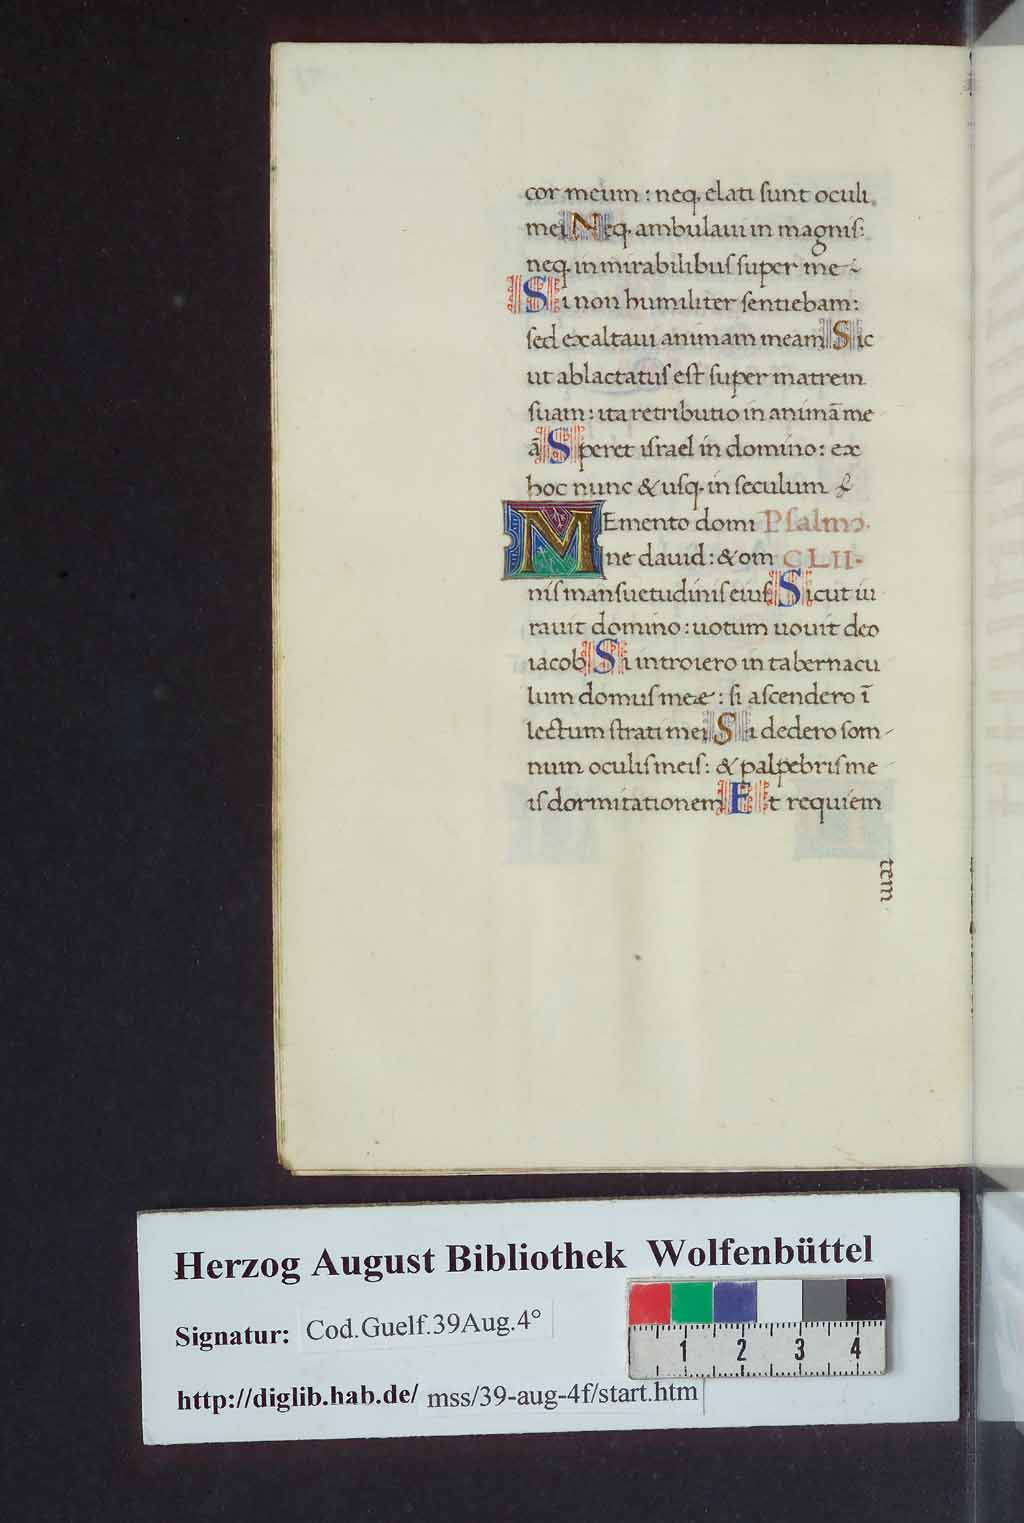 cor meum : neq. elati sunt oculi
mei Neq. ambulaui in magnis:
neq. in mirabilibus super me
Si non humiliter sentiebam:
sed exaltaui animam meam Sic
ut ablactatus est super matrem
suam : ita retributio in animā me
ā Speret israel in domino : ex
hoc nunc & usq. in seculum
MEmento domi Psalmo.
ne dauid : & om CLII.
nis mansuetudinis eius Sicut iu
rauit domino : uotum uouit deo
iacob Si introiero in tabernacu
lum domus meæ : si ascendero ī
lectum strati mei Si dedero som
num oculis meis : & palpebris me
is dormitationem Et requiem
tem
Herzog August Bibliothek Wolfenbüttel
Signatur: Cod.Guelf.39Aug.4°
http://diglib.hab.de/ mss/39-aug-4f/start.htm
1 2 3 4